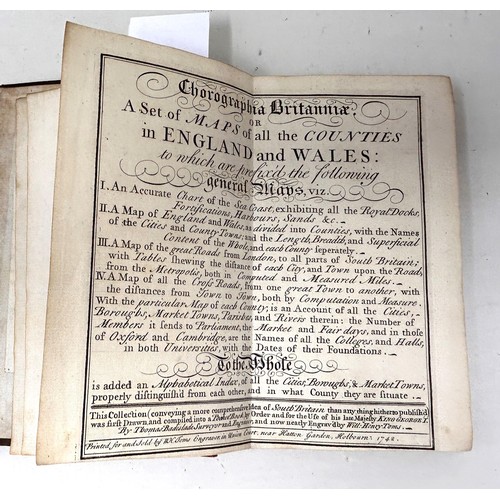 Chorographia Britanniæ.
OR
A Set of MAPS of all the COUNTIES
in ENGLAND and WALES:
to which are prefix'd the following
general Maps, viz.
I. An Accurate Chart of the Sea Coast, exhibiting all the Royal Docks,
Fortifications, Harbours, Sands &c.
II. A Map of England and Wales, as divided into Counties, with the Names
of the Cities and County-Towns; and the Length, Breadth, and Superficial
Content of the Whole, and each County seperately.
III. A Map of the great Roads from London, to all parts of South Britain;
with Tables shewing the distance of each City, and Town upon the Road,
from the Metropolis, both in Computed and Measured Miles.
IV. A Map of all the Cross Roads, from one great Town to another, with
the distances from Town to Town, both by Computation and Measure.
With the particular Map of each County; is an Account of all the Cities,
Boroughs, Market Towns, Parishes, and Rivers therein: the Number of
Members it sends to Parliament, the Market and Fair days, and in those
of Oxford and Cambridge, are the Names of all the Colleges, and Halls,
in both Universities, with the Dates of their Foundations.
To the Whole
is added an Alphabetical Index, of all the Cities, Boroughs, & Market Towns,
properly distinguish'd from each other, and in what County they are situate.
This Collection (conveying a more comprehensive Idea of South Britain than any thing hitherto publish'd)
was first Drawn, and compiled into a Pocket Book by Order and for the Use of his late Majesty KING GEORGE I.
By Thomas Badeslade Surveyor and Engineer, and now neatly Engrav'd by Will: Henry Toms.
Printed for and Sold by W.H. Toms Engraver in Union Court, near Hatton Garden, Holbourn. 1742.